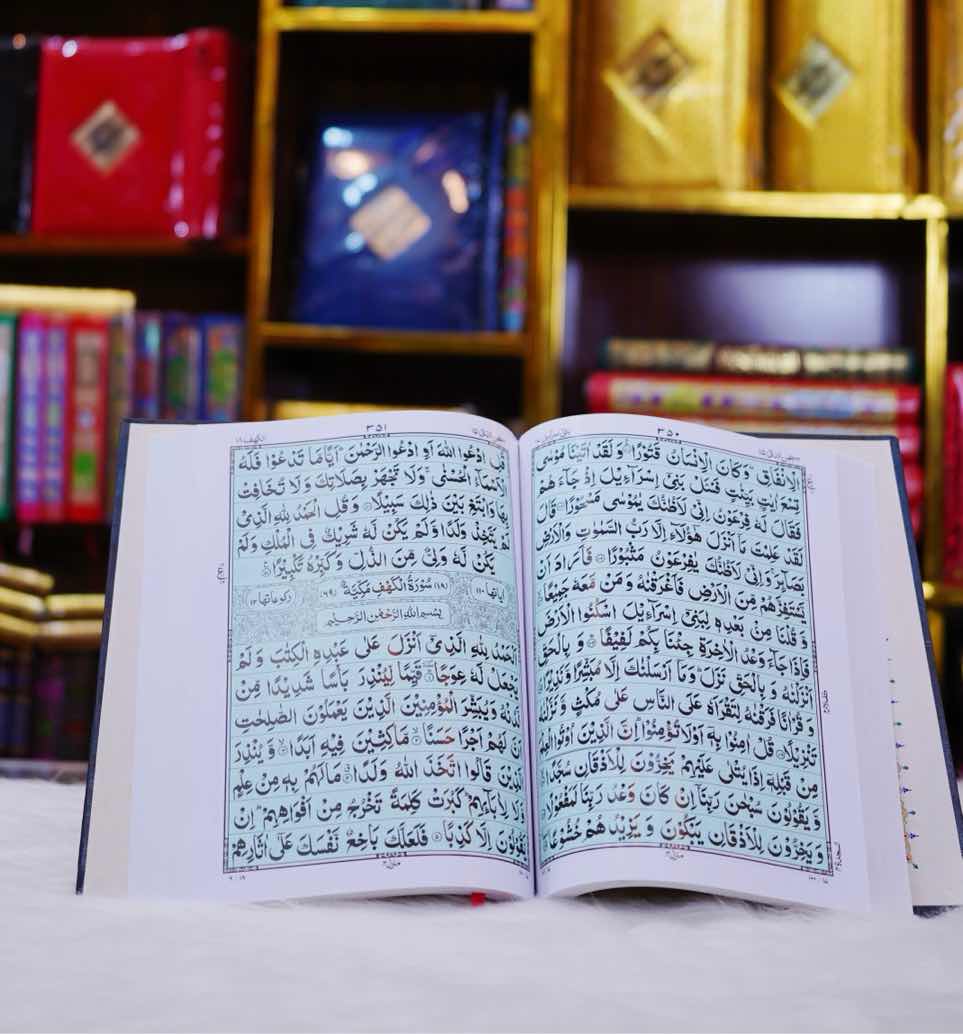 ٣٥٠
الْاِنْفَاقِ ؕ وَ كَانَ الْاِنْسَانُ قَتُوْرًا وَ لَقَدْ اٰتَیْنَا مُوْسٰی
تِسْعَ اٰیٰتٍۭ بَیِّنٰتٍ فَسْـَٔلْ بَنِیْۤ اِسْرَآءِیْلَ اِذْ جَآءَهُمْ
فَقَالَ لَهٗ فِرْعَوْنُ اِنِّیْ لَاَظُنُّكَ یٰمُوْسٰی مَسْحُوْرًا قَالَ
لَقَدْ عَلِمْتَ مَاۤ اَنْزَلَ هٰۤؤُلَآءِ اِلَّا رَبُّ السَّمٰوٰتِ وَ الْاَرْضِ
بَصَآىِٕرَ ۚ وَ اِنِّیْ لَاَظُنُّكَ یٰفِرْعَوْنُ مَثْبُوْرًا فَاَرَادَ اَنْ
یَّسْتَفِزَّهُمْ مِّنَ الْاَرْضِ فَاَغْرَقْنٰهُ وَ مَنْ مَّعَهٗ جَمِیْعًا
وَّ قُلْنَا مِنْۢ بَعْدِهٖ لِبَنِیْۤ اِسْرَآءِیْلَ اسْكُنُوا الْاَرْضَ
فَاِذَا جَآءَ وَعْدُ الْاٰخِرَةِ جِئْنَا بِكُمْ لَفِیْفًا وَ بِالْحَقِّ
اَنْزَلْنٰهُ وَ بِالْحَقِّ نَزَلَ ؕ وَ مَاۤ اَرْسَلْنٰكَ اِلَّا مُبَشِّرًا وَّ نَذِیْرًا
وَ قُرْاٰنًا فَرَقْنٰهُ لِتَقْرَاَهٗ عَلَی النَّاسِ عَلٰی مُكْثٍ وَّ نَزَّلْنٰهُ
تَنْزِیْلًا قُلْ اٰمِنُوْا بِهٖۤ اَوْ لَا تُؤْمِنُوْا ؕ اِنَّ الَّذِیْنَ اُوْتُوا الْعِلْمَ
مِنْ قَبْلِهٖۤ اِذَا یُتْلٰی عَلَیْهِمْ یَخِرُّوْنَ لِلْاَذْقَانِ سُجَّدًا
وَّ یَقُوْلُوْنَ سُبْحٰنَ رَبِّنَاۤ اِنْ كَانَ وَعْدُ رَبِّنَا لَمَفْعُوْلًا
وَ یَخِرُّوْنَ لِلْاَذْقَانِ یَبْكُوْنَ وَ یَزِیْدُهُمْ خُشُوْعًا
٣٥١
الكهف ١٨
قُلِ ادْعُوا اللّٰهَ اَوِ ادْعُوا الرَّحْمٰنَ ؕ اَیًّا مَّا تَدْعُوْا فَلَهُ
الْاَسْمَآءُ الْحُسْنٰی ۚ وَ لَا تَجْهَرْ بِصَلَاتِكَ وَ لَا تُخَافِتْ
بِهَا وَ ابْتَغِ بَیْنَ ذٰلِكَ سَبِیْلًا وَ قُلِ الْحَمْدُ لِلّٰهِ الَّذِیْ
لَمْ یَتَّخِذْ وَلَدًا وَّ لَمْ یَكُنْ لَّهٗ شَرِیْكٌ فِی الْمُلْكِ وَ لَمْ
یَكُنْ لَّهٗ وَلِیٌّ مِّنَ الذُّلِّ وَ كَبِّرْهُ تَكْبِیْرًا
اٰیاتها ١١٠ (١٨) سُوْرَةُ الْكَهْفِ مَكِّیَّةٌ (٦٩) ركوعاتها ١٢
بِسْمِ اللّٰهِ الرَّحْمٰنِ الرَّحِیْمِ
اَلْحَمْدُ لِلّٰهِ الَّذِیْۤ اَنْزَلَ عَلٰی عَبْدِهِ الْكِتٰبَ وَ لَمْ
یَجْعَلْ لَّهٗ عِوَجًا قَیِّمًا لِّیُنْذِرَ بَاْسًا شَدِیْدًا مِّنْ
لَّدُنْهُ وَ یُبَشِّرَ الْمُؤْمِنِیْنَ الَّذِیْنَ یَعْمَلُوْنَ الصّٰلِحٰتِ
اَنَّ لَهُمْ اَجْرًا حَسَنًا مَّاكِثِیْنَ فِیْهِ اَبَدًا وَّ یُنْذِرَ
الَّذِیْنَ قَالُوا اتَّخَذَ اللّٰهُ وَلَدًا مَا لَهُمْ بِهٖ مِنْ عِلْمٍ
وَّ لَا لِاٰبَآىِٕهِمْ ؕ كَبُرَتْ كَلِمَةً تَخْرُجُ مِنْ اَفْوَاهِهِمْ ؕ اِنْ
یَّقُوْلُوْنَ اِلَّا كَذِبًا فَلَعَلَّكَ بَاخِعٌ نَّفْسَكَ عَلٰۤی اٰثَارِهِمْ